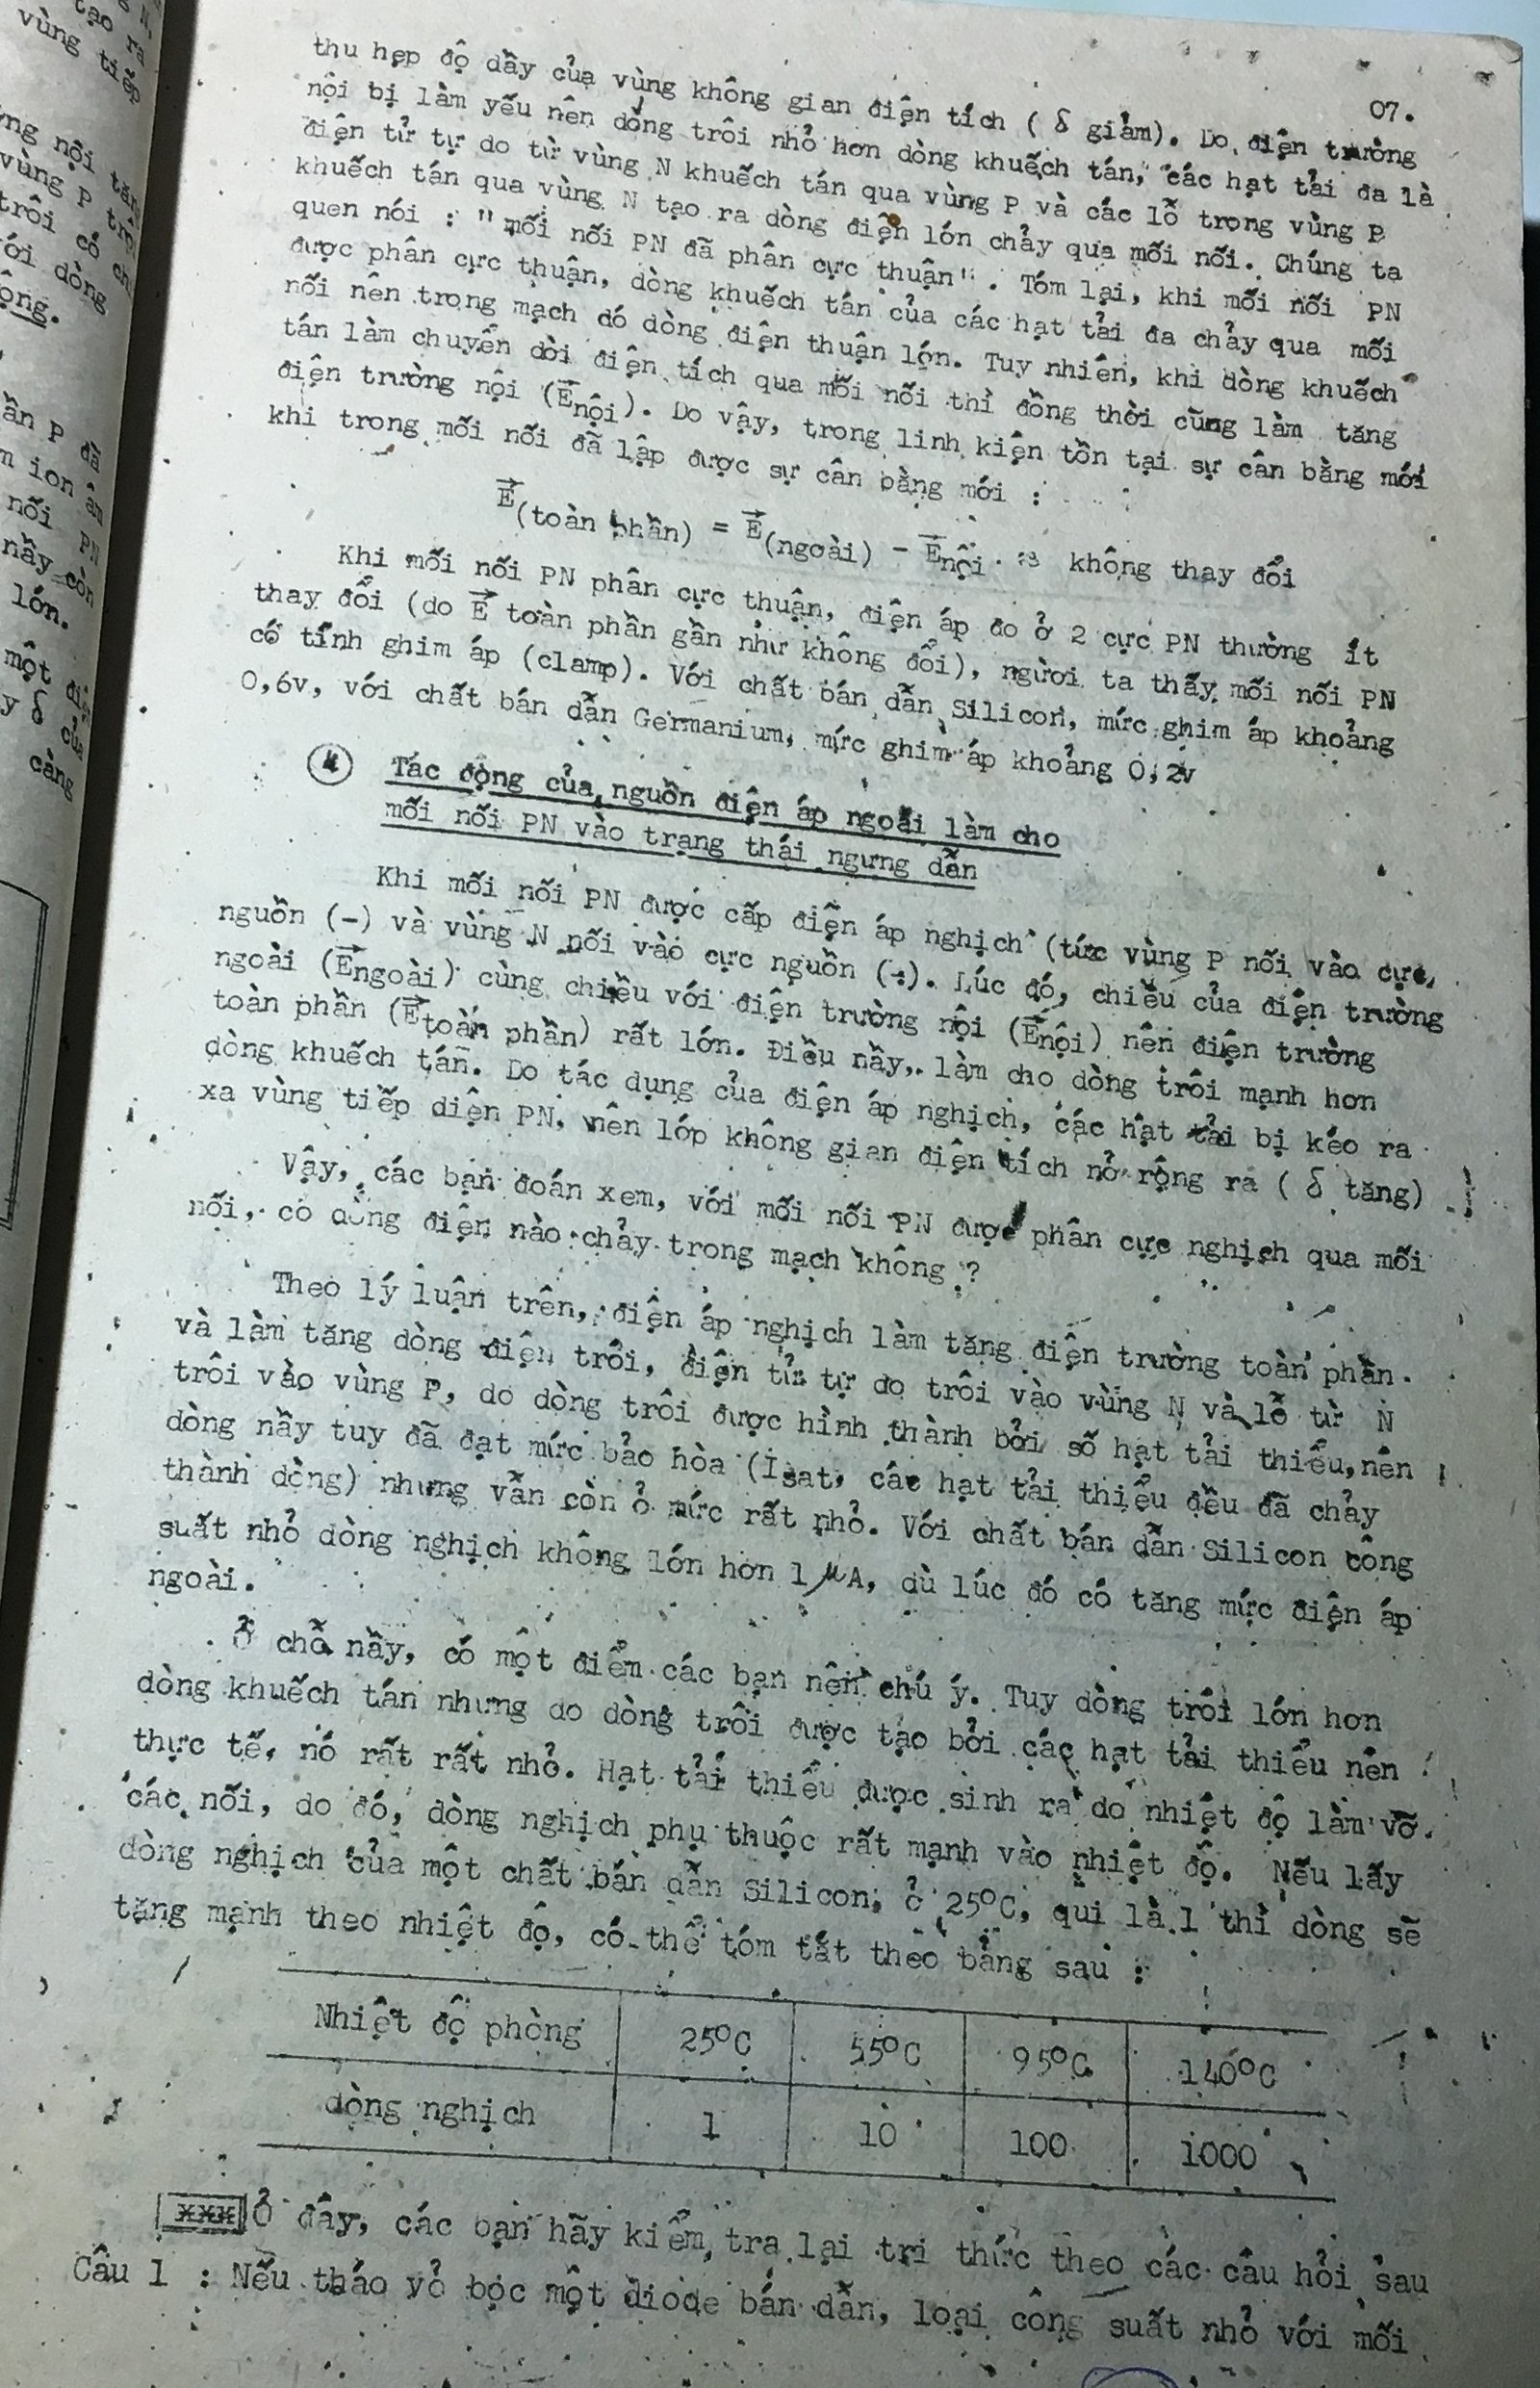 07.
thu hẹp độ dầy của vùng không gian điện tích ( δ giảm). Do điện trường
nội bị làm yếu nên dòng trôi nhỏ hơn dòng khuếch tán, các hạt tải đa là
điện tử tự do từ vùng N khuếch tán qua vùng P và các lỗ trong vùng P
khuếch tán qua vùng N tạo ra dòng điện lớn chảy qua mối nối. Chúng ta
quen nói : "mối nối PN đã phân cực thuận". Tóm lại, khi mối nối PN
được phân cực thuận, dòng khuếch tán của các hạt tải đa chảy qua mối
nối nên trong mạch dó dòng điện thuận lớn. Tuy nhiên, khi dòng khuếch
tán làm chuyển dời điện tích qua mối nối thì đồng thời cũng làm tăng
điện trường nội (E⃗nội). Do vậy, trong linh kiện tồn tại sự cân bằng mới
khi trong mối nối đã lập được sự cân bằng mới :
E⃗(toàn phần) = E⃗(ngoài) - E⃗nội ≈ không thay đổi
Khi mối nối PN phân cực thuận, điện áp đo ở 2 cực PN thường ít
thay đổi (do E⃗ toàn phần gần như không đổi), người ta thấy mối nối PN
có tính ghim áp (clamp). Với chất bán dẫn Silicon, mức ghim áp khoảng
0,6v, với chất bán dẫn Germanium, mức ghim áp khoảng 0,2v
4 Tác động của nguồn điện áp ngoài làm cho
mối nối PN vào trạng thái ngưng dẫn
Khi mối nối PN được cấp điện áp nghịch (tức vùng P nối vào cực
nguồn (-) và vùng N nối vào cực nguồn (+). Lúc đó, chiều của điện trường
ngoài (E⃗ngoài) cùng chiều với điện trường nội (E⃗nội) nên điện trường
toàn phần (E⃗toàn phần) rất lớn. Điều nầy, làm cho dòng trôi mạnh hơn
dòng khuếch tán. Do tác dụng của điện áp nghịch, các hạt tải bị kéo ra
xa vùng tiếp diện PN, nên lớp không gian điện tích nở rộng ra ( δ tăng)
Vậy, các bạn đoán xem, với mối nối PN được phân cực nghịch qua mối
nối, có dòng điện nào chảy trong mạch không ?
Theo lý luận trên, điện áp nghịch làm tăng điện trường toàn phần
và làm tăng dòng điện trôi, điện tử tự do trôi vào vùng N và lỗ từ N
trôi vào vùng P, do dòng trôi được hình thành bởi số hạt tải thiểu, nên
dòng nầy tuy đã đạt mức bảo hòa (Isat, các hạt tải thiểu đều đã chảy
thành dòng) nhưng vẫn còn ở mức rất nhỏ. Với chất bán dẫn Silicon công
suất nhỏ dòng nghịch không lớn hơn 1 μA, dù lúc đó có tăng mức điện áp
ngoài.
Ở chỗ nầy, có một điểm các bạn nên chú ý. Tuy dòng trôi lớn hơn
dòng khuếch tán nhưng do dòng trôi được tạo bởi các hạt tải thiểu nên
thực tế, nó rất rất nhỏ. Hạt tải thiểu được sinh ra do nhiệt độ làm vỡ
các nối, do đó, dòng nghịch phụ thuộc rất mạnh vào nhiệt độ. Nếu lấy
dòng nghịch của một chất bán dẫn Silicon, ở 25°C, qui là 1 thì dòng sẽ
tăng mạnh theo nhiệt độ, có thể tóm tắt theo bảng sau :
Nhiệt độ phòng 25°C 55°C 95°C 140°C
dòng nghịch 1 10 100 1000
*** Ở đây, các bạn hãy kiểm tra lại tri thức theo các câu hỏi sau
Câu 1 : Nếu tháo vỏ bọc một diode bán dẫn, loại công suất nhỏ với mối
tạo ra
vùng tiếp
nội tăng
vùng P
trôi có
với dòng
P đã
ion âm
nối PN
nầy còn
lớn.
một
δ của
càng